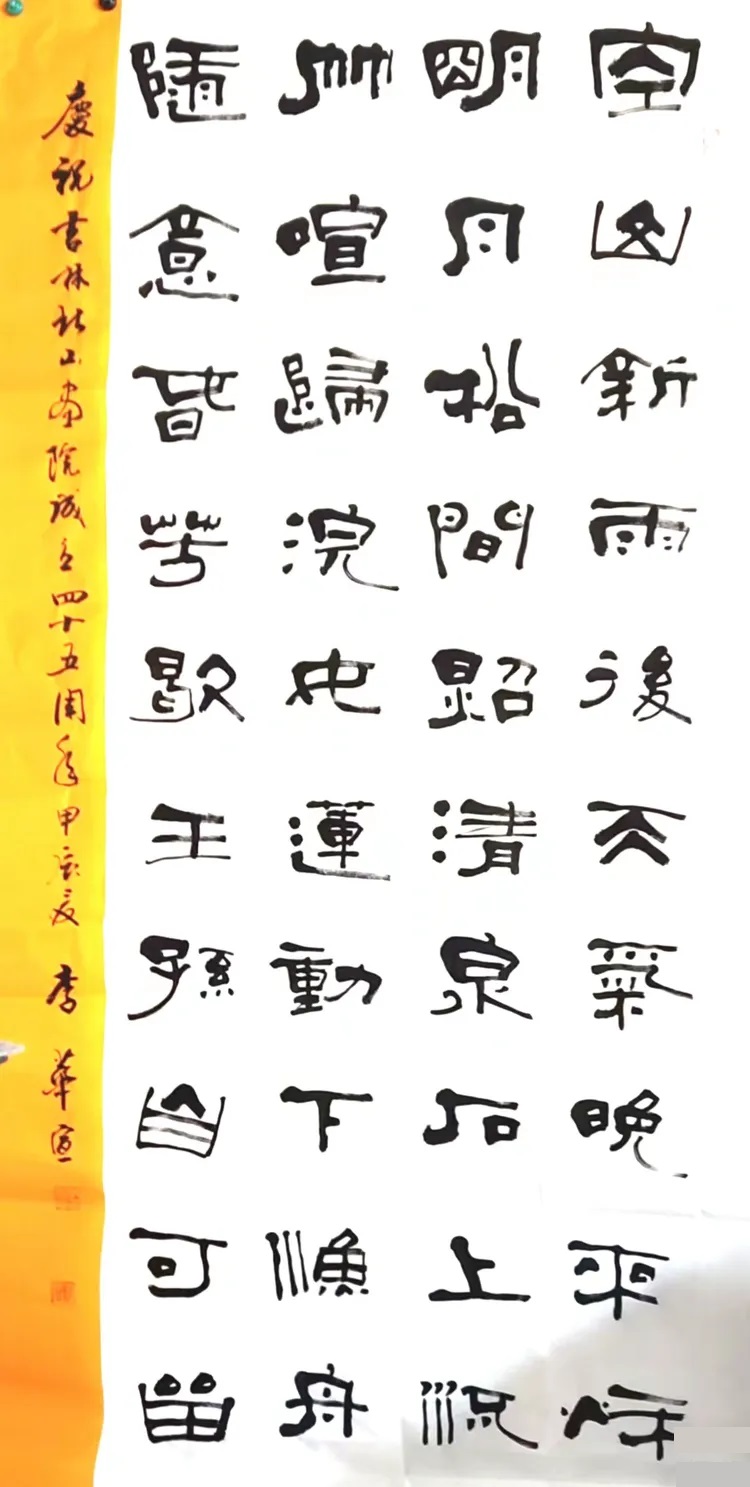 空山新雨後天氣晚來秋
明月松間照清泉石上流
竹喧歸浣女蓮動下漁舟
隨意春芳歇王孫自可留
慶祝吉林北山畫院成立四十五周年甲辰夏 李華宣